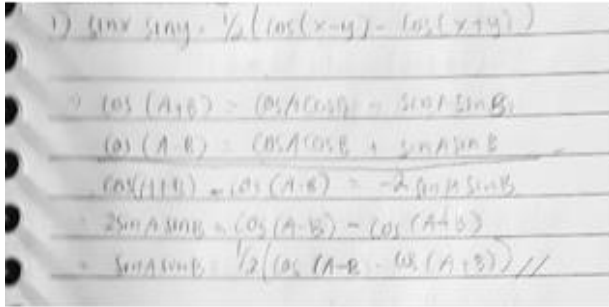 1) sinx siny = 1/2 (cos(x-y) - cos(x+y))
=) cos (A+B) = cosA cosB - sinA sinB
cos (A-B) = cosA cosB + sinA sinB
cos(A+B) - cos (A-B) = -2 sinA sinB
2sin A sinB = cos (A-B) - cos (A+B)
= sinA sinB = 1/2 (cos (A-B - cos (A+B)) //